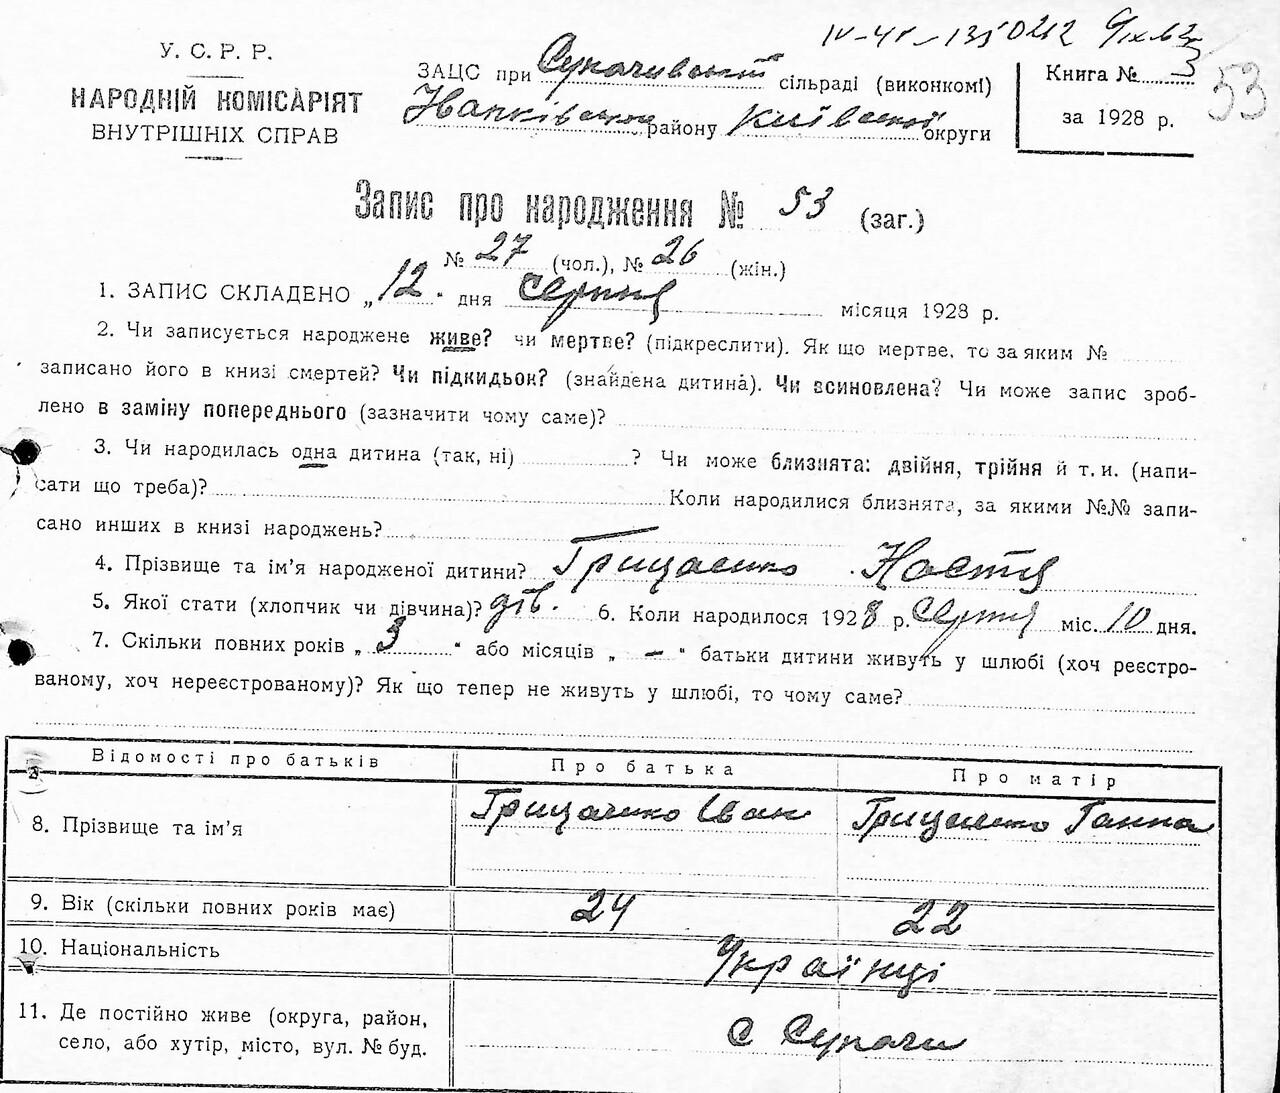 IV-ЧУ-1350212 9/ІХ-62
У. С. Р. Р.
НАРОДНІЙ КОМІСАРІЯТ
ВНУТРІШНІХ СПРАВ
ЗАЦС при Сукачівській сільраді (виконкомі)
Іванківського району Київської округи
Книга № 3
за 1928 р.
53
Запис про народження № 53 (заг.)
№ 27 (чол.), № 26 (жін.)
1. ЗАПИС СКЛАДЕНО „12“ дня Серпня місяця 1928 р.
2. Чи записується народжене живе? чи мертве? (підкреслити). Як що мертве, то за яким №
записано його в книзі смертей? Чи підкидьок? (знайдена дитина). Чи всиновлена? Чи може запис зроб-
лено в заміну попереднього (зазначити чому саме)?
3. Чи народилась одна дитина (так, ні) ? Чи може близнята: двійня, трійня й т. и. (напи-
сати що треба)? Коли народилися близнята, за якими №№ запи-
сано инших в книзі народжень?
4. Прізвище та ім’я народженої дитини? Грищенко Настя
5. Якої стати (хлопчик чи дівчина)? дів. 6. Коли народилося 1928 р. Серпня міс. 10 дня.
7. Скільки повних років „ 3 “ або місяців „ — “ батьки дитини живуть у шлюбі (хоч реєстро-
ваному, хоч нереєстрованому)? Як що тепер не живуть у шлюбі, то чому саме?
Відомості про батьків Про батька Про матір
8. Прізвище та ім’я Грищенко Іван Грищенко Ганна
9. Вік (скільки повних років має) 24 22
10. Національність Українці
11. Де постійно живе (округа, район,
село, або хутір, місто, вул. № буд. с Сукачі